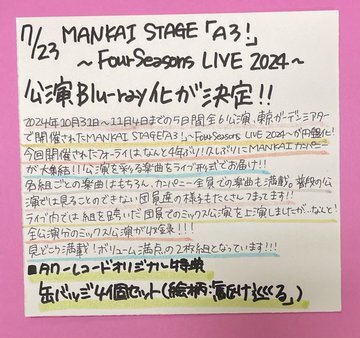 7/23 MANKAI STAGE「A3!」
～FourSeasons LIVE 2024～
公演Blu-ray化が決定!!
2024年10月31日～11月4日までの5日間全6公演、東京ガーデンシアター
で開催されたMANKAI STAGE「A3!」～FourSeasons LIVE 2024～が円盤化!
今回開催されたフォーライはなんと4年ぶり!久しぶりにMANKAIカンパニー
が大集結!!!公演を彩る楽曲をライブ形式でお届け!!
各組ごとの楽曲はもちろん、カンパニー全員での楽曲も満載。普段の公
演では見ることのできない団員達の様子もたくさんつまってます!!
ライブ内では組を跨いだ団員でのミックス公演を上演しましたが…なんと!
全公演分のミックス公演が収録!!!
見どころ満載!ボリューム満点の2枚組となっています!!!
■タワーレコードオリジナル特典
缶バッジ4個セット(絵柄: